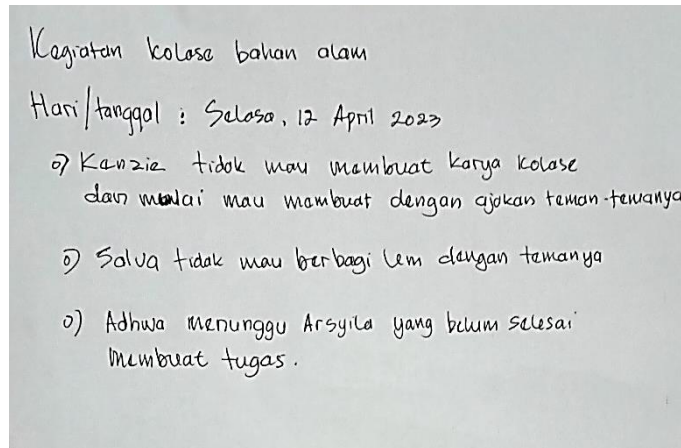 Kegiatan kolase bahan alam
Hari/tanggal : Selasa, 12 April 2023
o) Kanzie tidak mau membuat karya kolase
dan mulai mau membuat dengan ajakan teman-temanya
o) Salva tidak mau berbagi lem dengan temanya
o) Adhwa menunggu Arsyila yang belum selesai
membuat tugas.